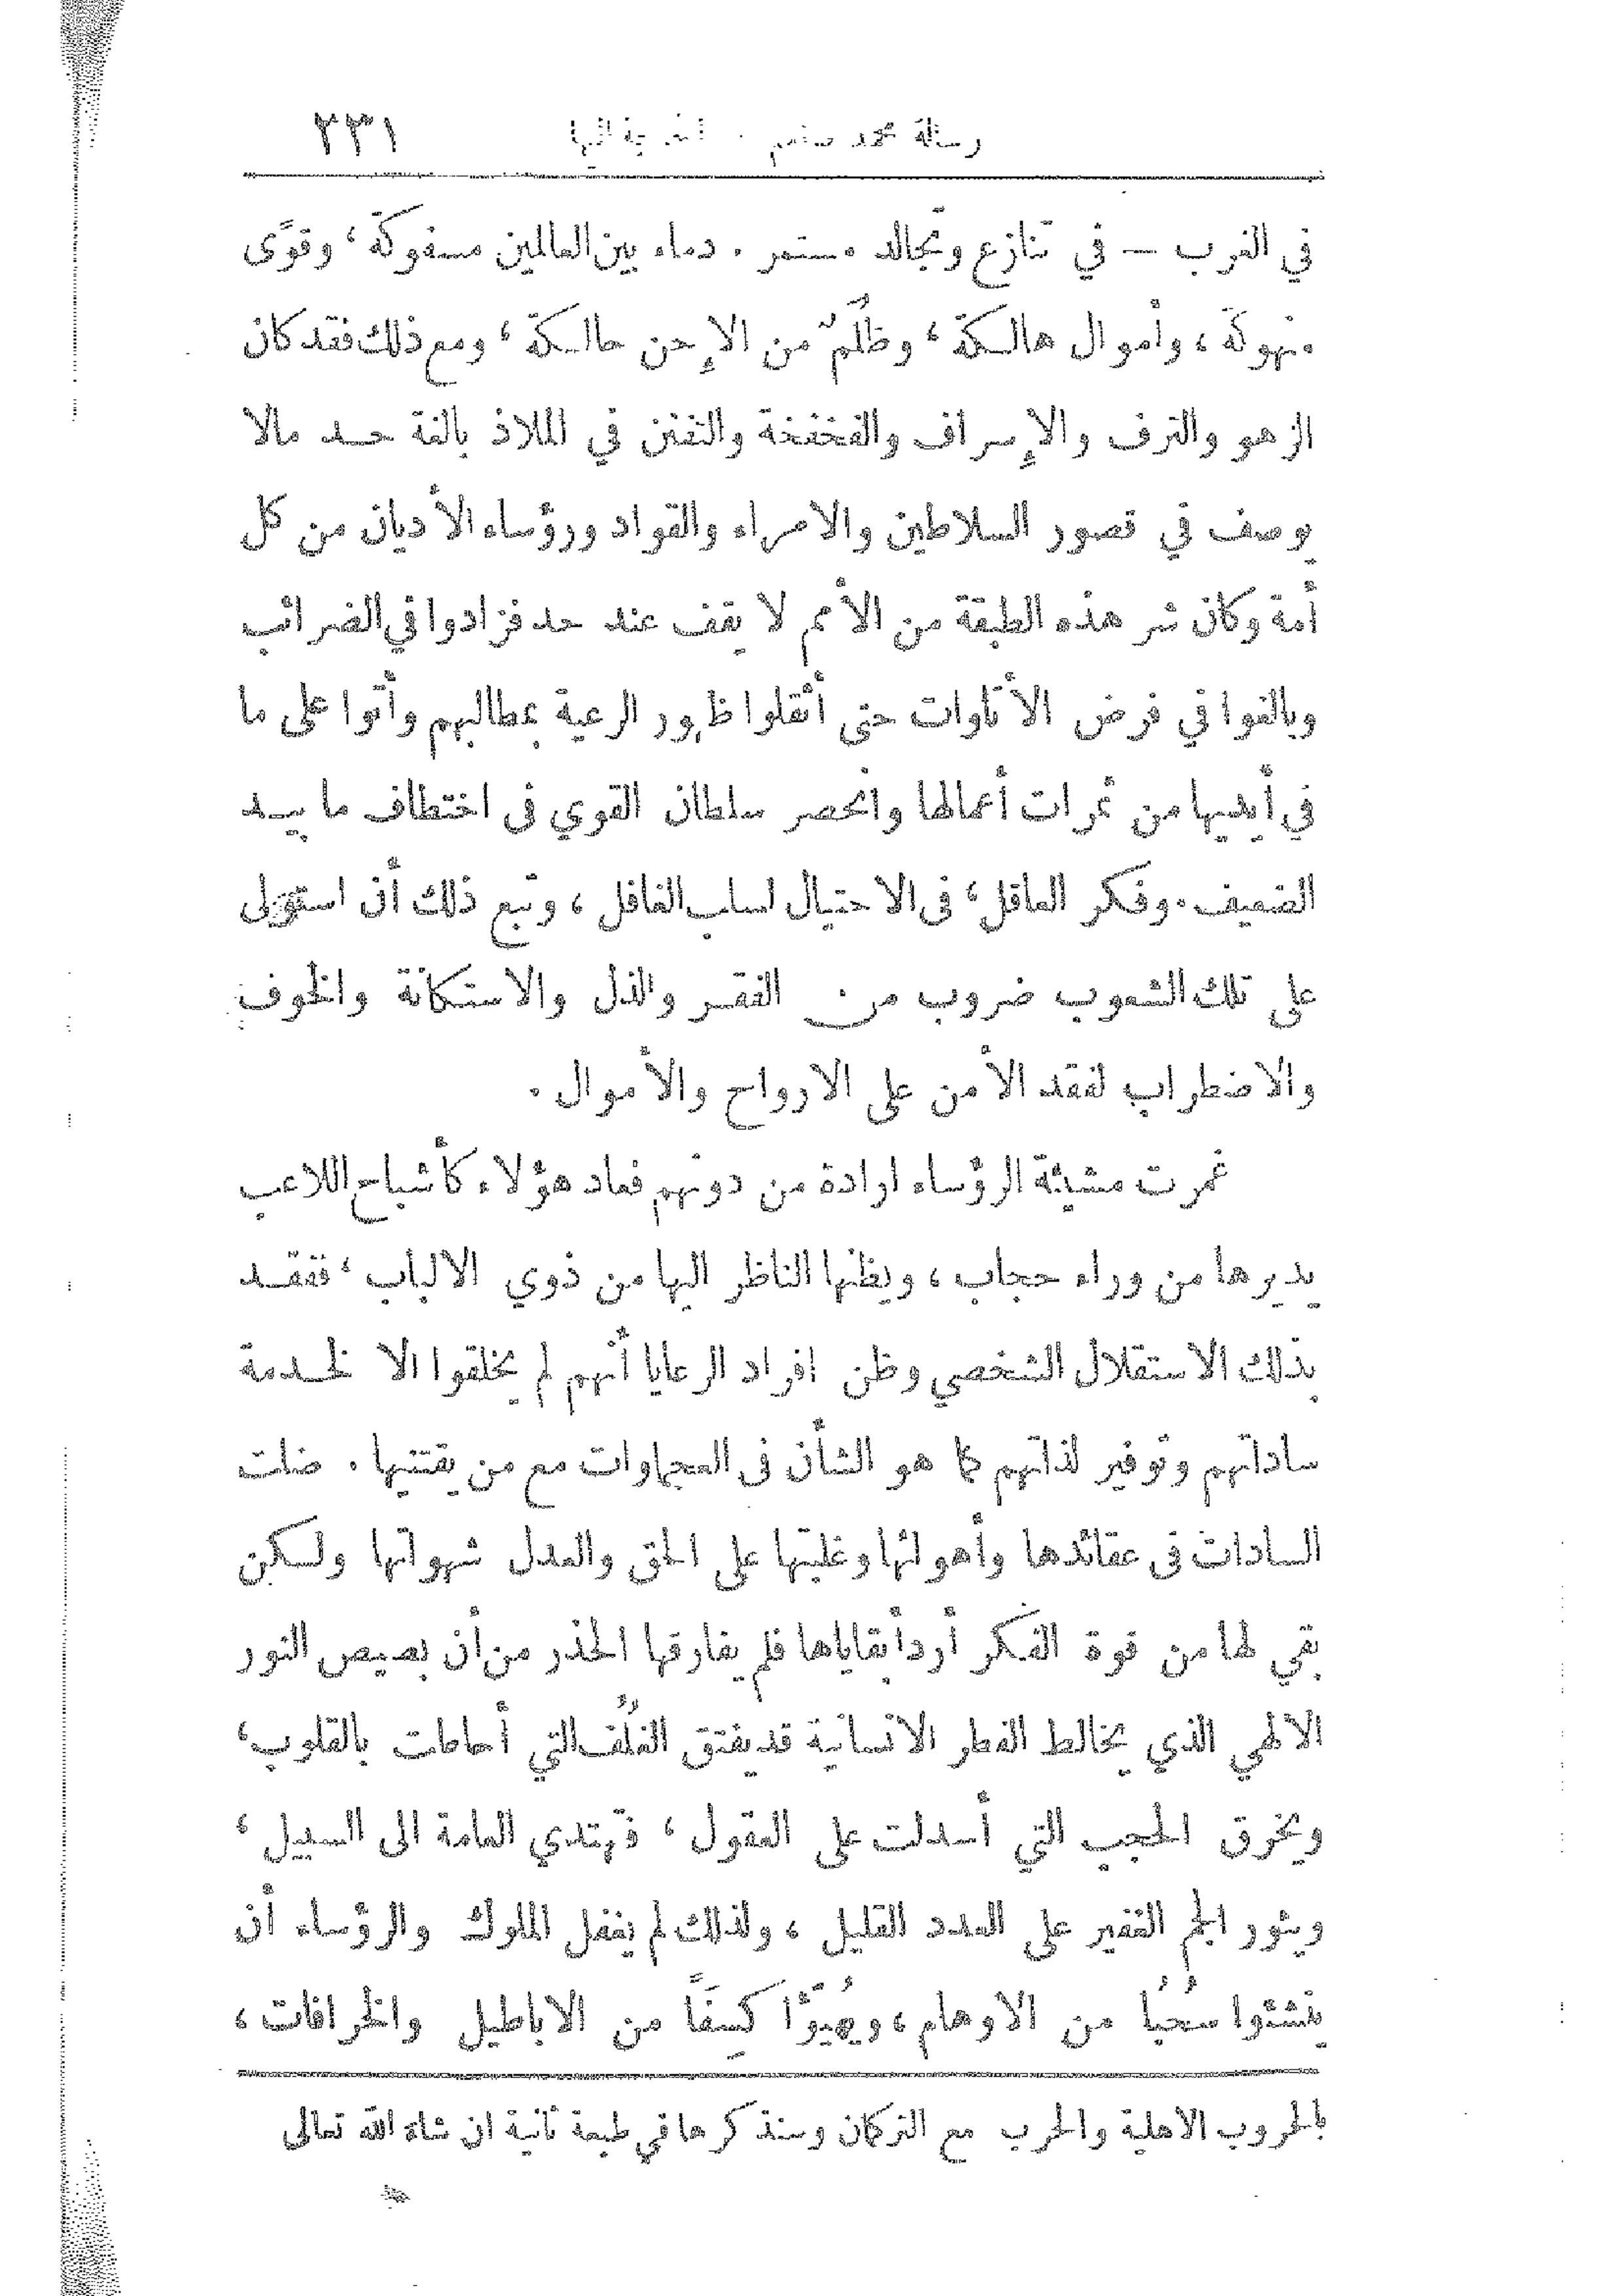 رسالة محمد صلعم ١٣٣
في الغرب — في تنازع وتجالد مستمر . دماء بين العالمين مسفوكة ، وقوًى
منهوكة ، وأموال هالكة ، وظُلَمٌ من الإحن حالكة ، ومع ذلك فقد كان
الزهو والترف والإسراف والفخفخة والتفنن في الملاذ بالغة حد مالا
يوصف في قصور السلاطين والامراء والقواد ورؤساء الأديان من كل
أمة وكان شر هذه الطبقة من الأمم لا يقف عند حد فزادوا في الضرائب
وبالغوا في فرض الأتاوات حتى أثقلوا ظهور الرعية بمطالبهم وأتوا على ما
في أيديها من ثمرات أعمالها وانحصر سلطان القوي فى اختطاف ما بيد
الضعيف . وفكر العاقل ، فى الاحتيال لسلب الغافل ، وتبع ذلك أن استولى
على تلك الشعوب ضروب من الفقر والذل والاستكانة والخوف
والاضطراب لفقد الأمن على الارواح والأموال .
غمرت مشيئة الرؤساء ارادة من دونهم فعاد هؤلاء كأشباح اللاعب
يديرها من وراء حجاب ، ويظنها الناظر اليها من ذوي الالباب ، ففقد
بذلك الاستقلال الشخصي وظن افراد الرعايا أنهم لم يخلقوا الا لخدمة
ساداتهم وتوفير لذاتهم كما هو الشأن فى العجماوات مع من يقتنيها . ضلت
السادات فى عقائدها وأهوائها وغلبتها على الحق والعدل شهواتها ولكن
بقي لها من قوة الفكر أردأ بقاياها فلم يفارقها الحذر من أن بصيص النور
الالهي الذي يخالط الفطر الانسانية قد يفتق الغُلُف التي أحاطت بالقلوب ،
ويخرق الحجب التي أسدلت على العقول ، فتهتدي العامة الى السبيل ،
ويثور الجم الغفير على العدد القليل ، ولذلك لم يغفل الملوك والرؤساء أن
ينشئوا سُحُبًا من الاوهام ، ويُهيّؤا كِسَفًا من الاباطيل والخرافات ،
بالحروب الاهلية والحرب مع التركمان وسنذكرها في طبعة ثانية ان شاء الله تعالى